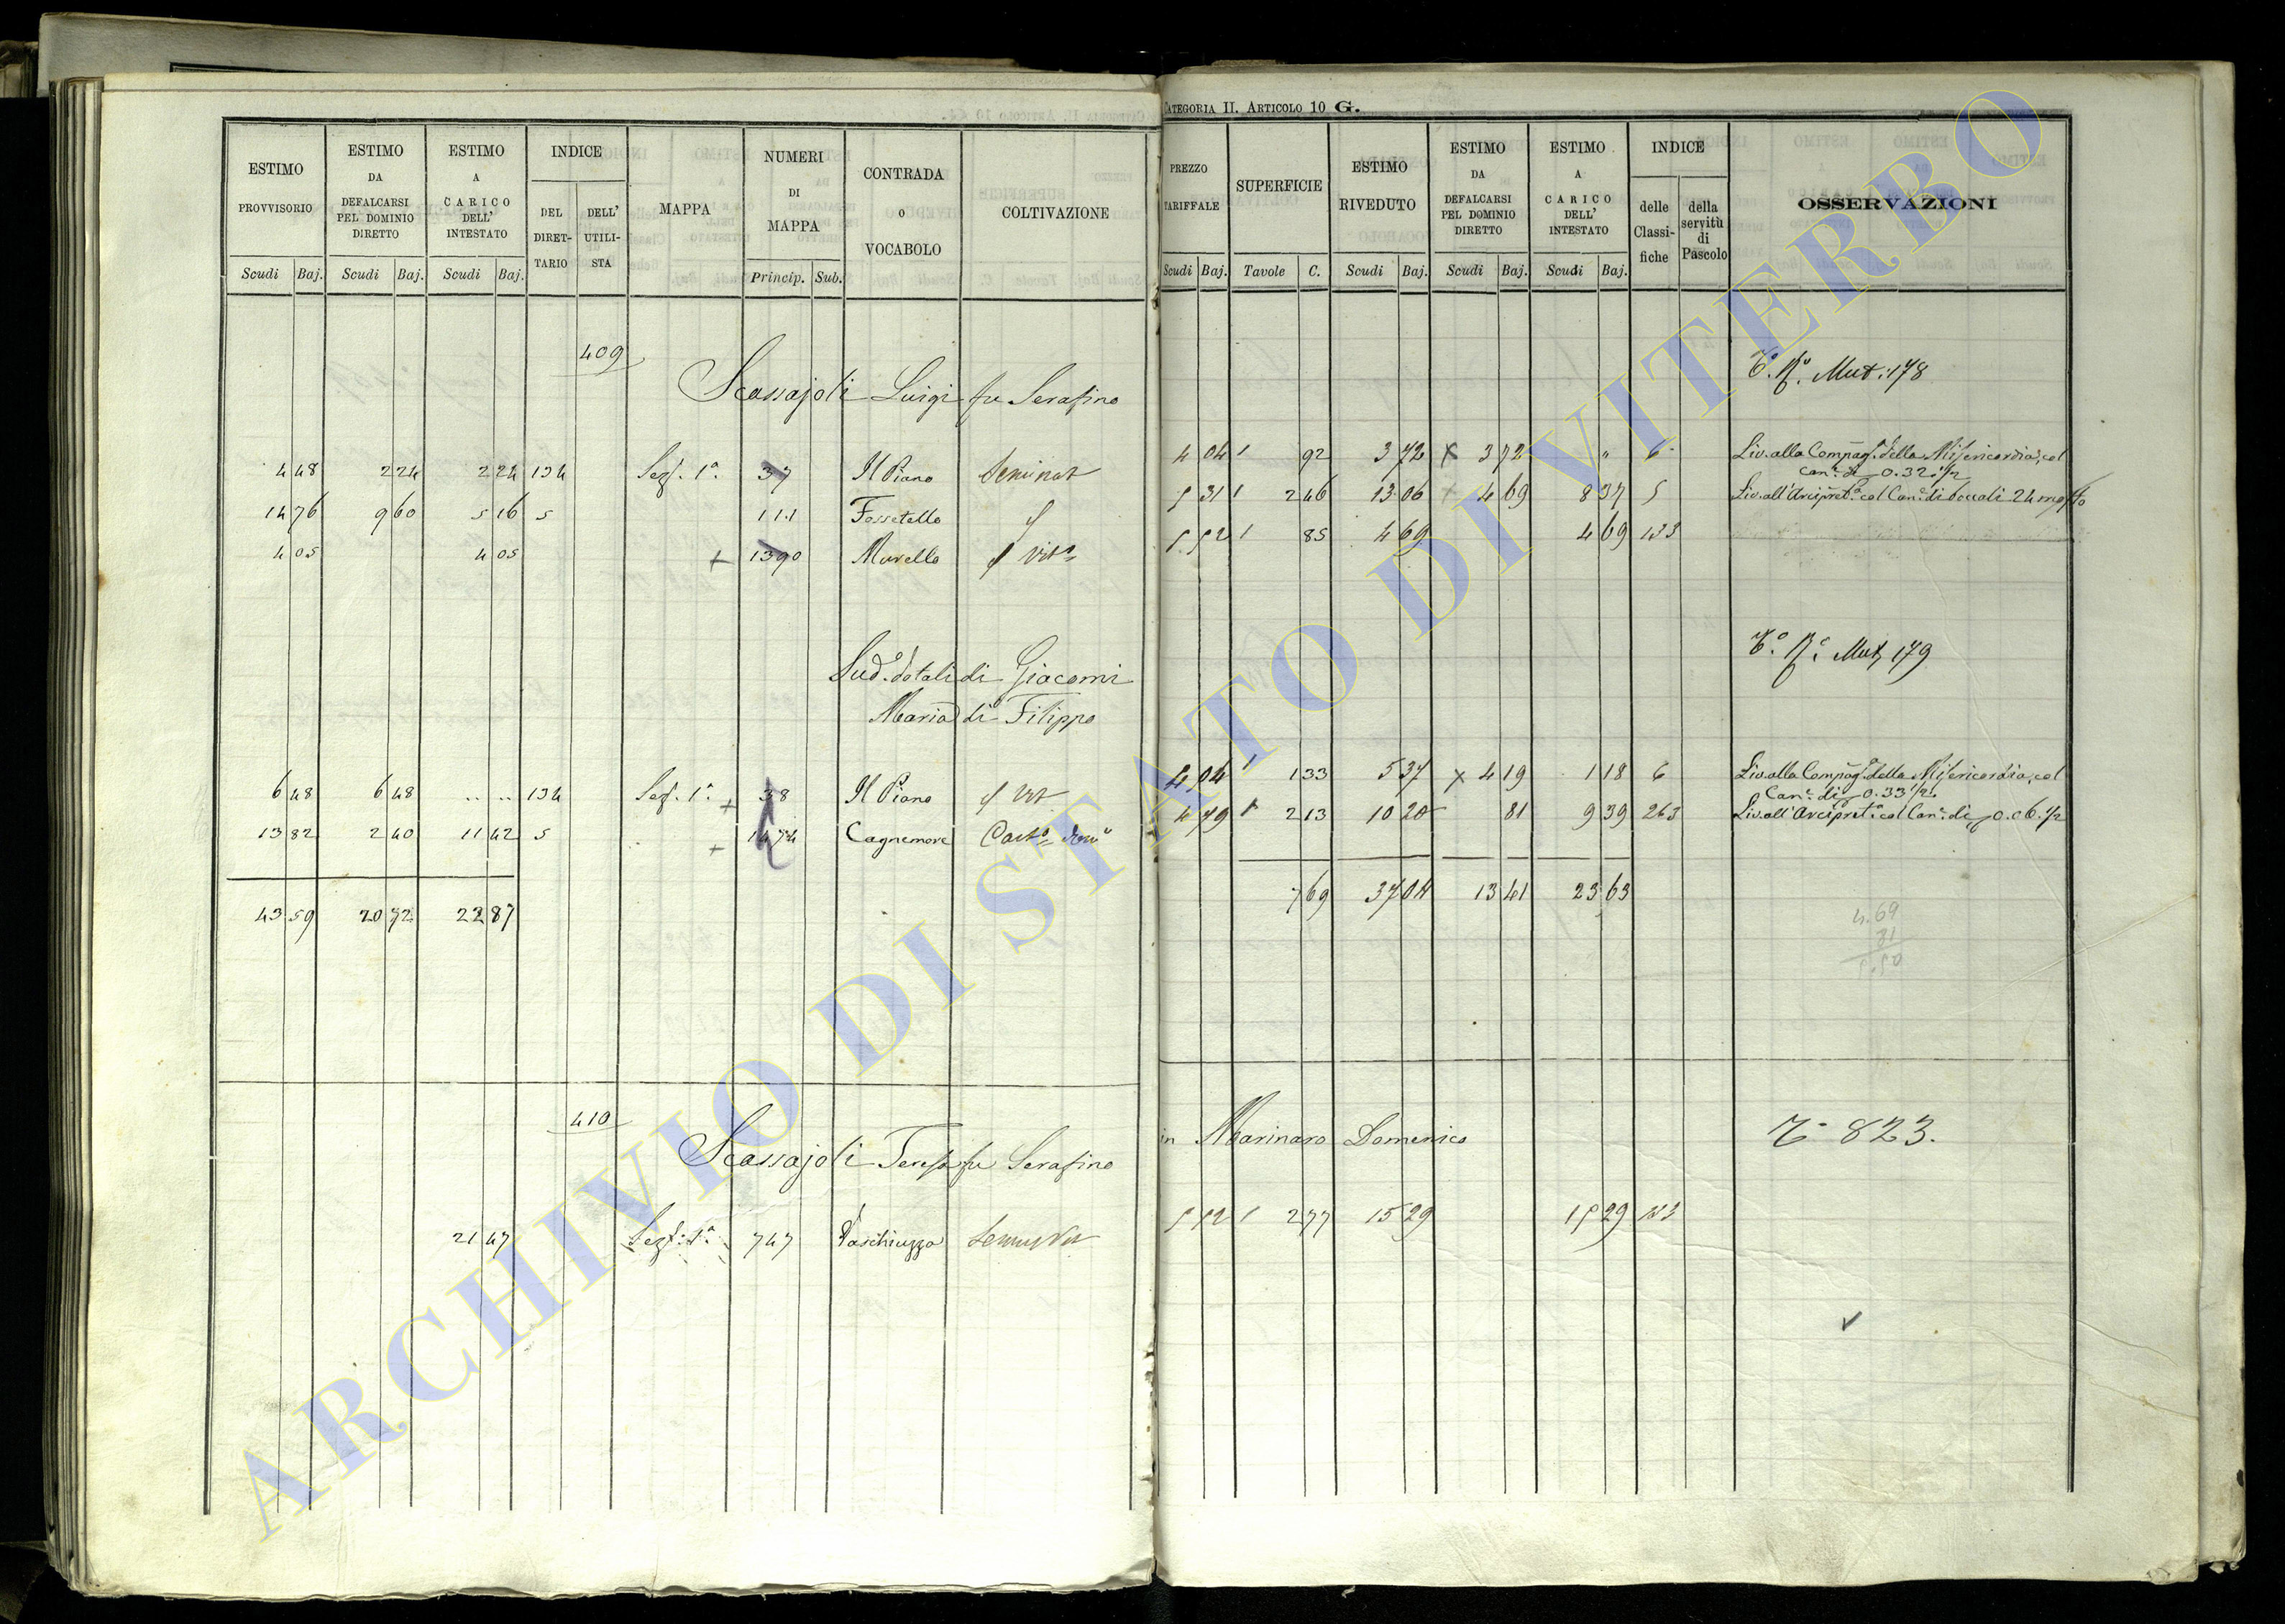 CATEGORIA II. ARTICOLO 10 G.
ESTIMO PROVVISORIO Scudi Baj.
ESTIMO DA DEFALCARSI PEL DOMINIO DIRETTO Scudi Baj.
ESTIMO A CARICO DELL' INTESTATO Scudi Baj.
INDICE DEL DIRET-TARIO DELL' UTILI-STA
MAPPA
NUMERI DI MAPPA Princip. Sub.
CONTRADA O VOCABOLO
COLTIVAZIONE
PREZZO TARIFFALE Scudi Baj.
SUPERFICIE Tavole C.
ESTIMO RIVEDUTO Scudi Baj.
ESTIMO DA DEFALCARSI PEL DOMINIO DIRETTO Scudi Baj.
ESTIMO A CARICO DELL' INTESTATO Scudi Baj.
INDICE delle Classi-fiche della servitù di Pascolo
OSSERVAZIONI
409
Scassajoli Luigi fu Serafino
Mut: 178
4 48 2 24 2 24 134 Sez. 1ª 37 Il Piano Seminat 4 04 1 92 3 72 x 3 72 " 6 Liv. alla Compag. della Misericordia, col
can. di 0.32 ½
14 76 9 60 5 16 5 111 Fossetello 5 31 1 246 13 06 4 69 8 37 5 Liv. all'Arcipret. col Can. di boccali 24 mosto
4 05 4 05 + 1390 Murello Vit 5 52 1 85 4 69 4 69 133
Sud. dotali di Giacomi
Maria di Filippo
Mut, 179
6 48 6 48 .. .. 134 Sez. 1ª + 38 Il Piano Vit 4 04 1 133 5 37 x 4 19 1 18 6 Liv. alla Compag. della Misericordia, col
Can. di 0.33 ½
13 82 2 40 11 42 5 + 1474 Cagnemore 4 79 1 213 10 20 81 9 39 263 Liv. all'Arcipret. col Can. di 0.06.½
43 59 20 72 22 87 769 37 04 13 41 23 63
4.69
81
5.50
410
Scassajoli Teresa fu Serafino in Marinaro Domenico
823.
21 47 Sez. 1ª 747 Paschiuzzo 5 52 1 277 15 29 15 29 133
ARCHIVIO DI STATO DI VITERBO